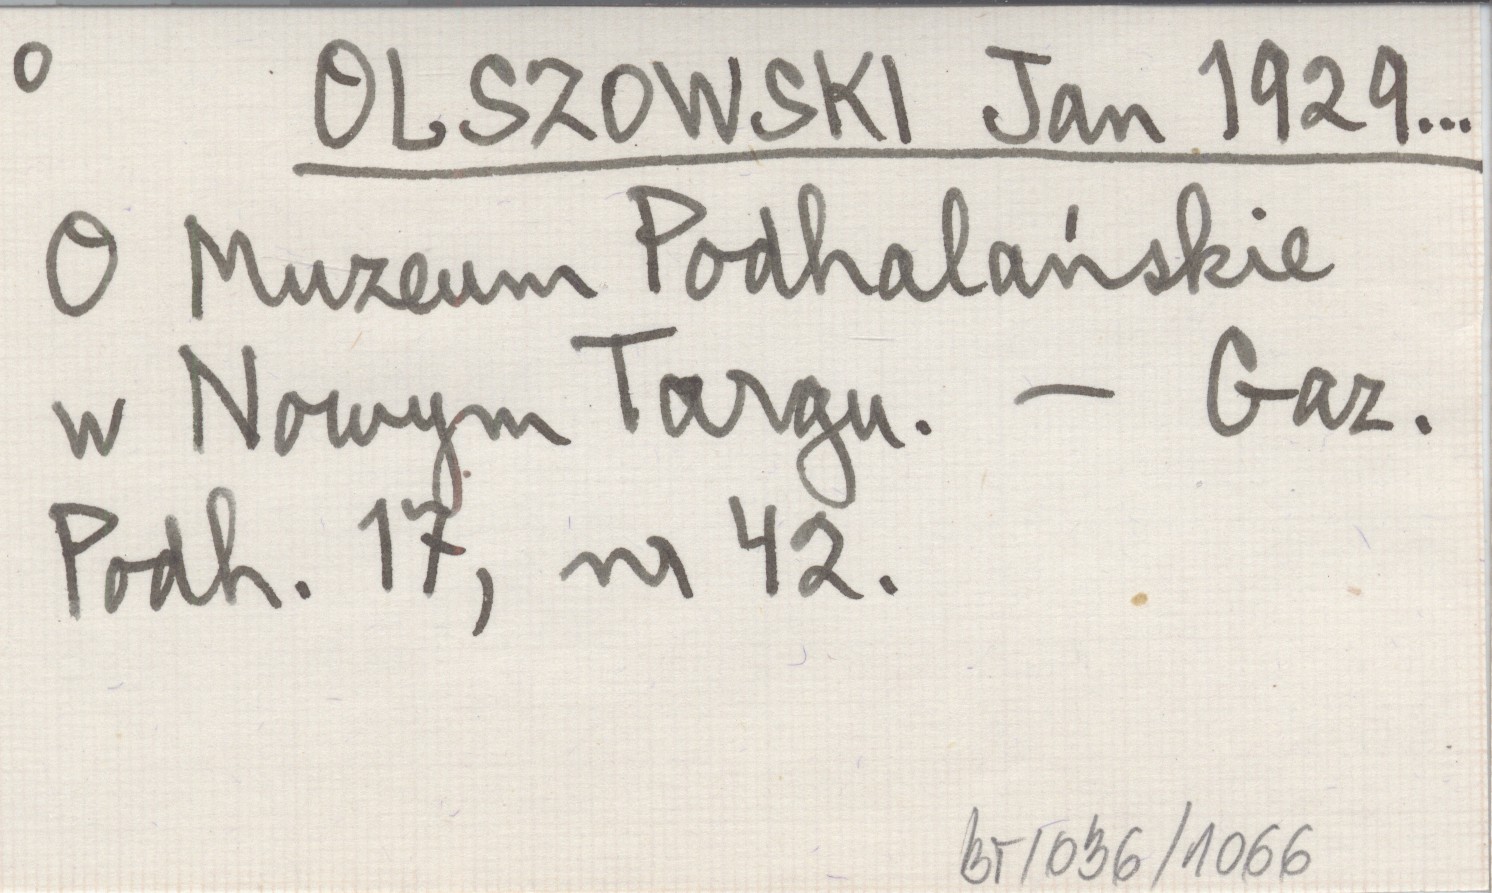 o OLSZOWSKI Jan 1929...
O Muzeum Podhalańskie
w Nowym Targu. — Gaz.
Podh. 17, nr 42.
BT/036/1066